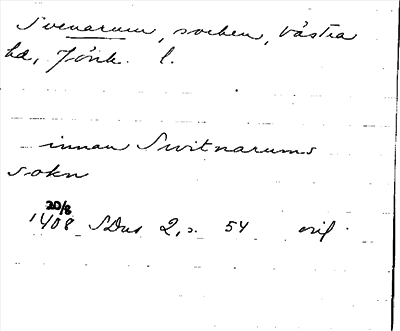 Svenarum, socken, Västra
hd, Jönk. l.
innan Switnarums
sokn
20/8
1408 SDns 2, s. 54 orig.